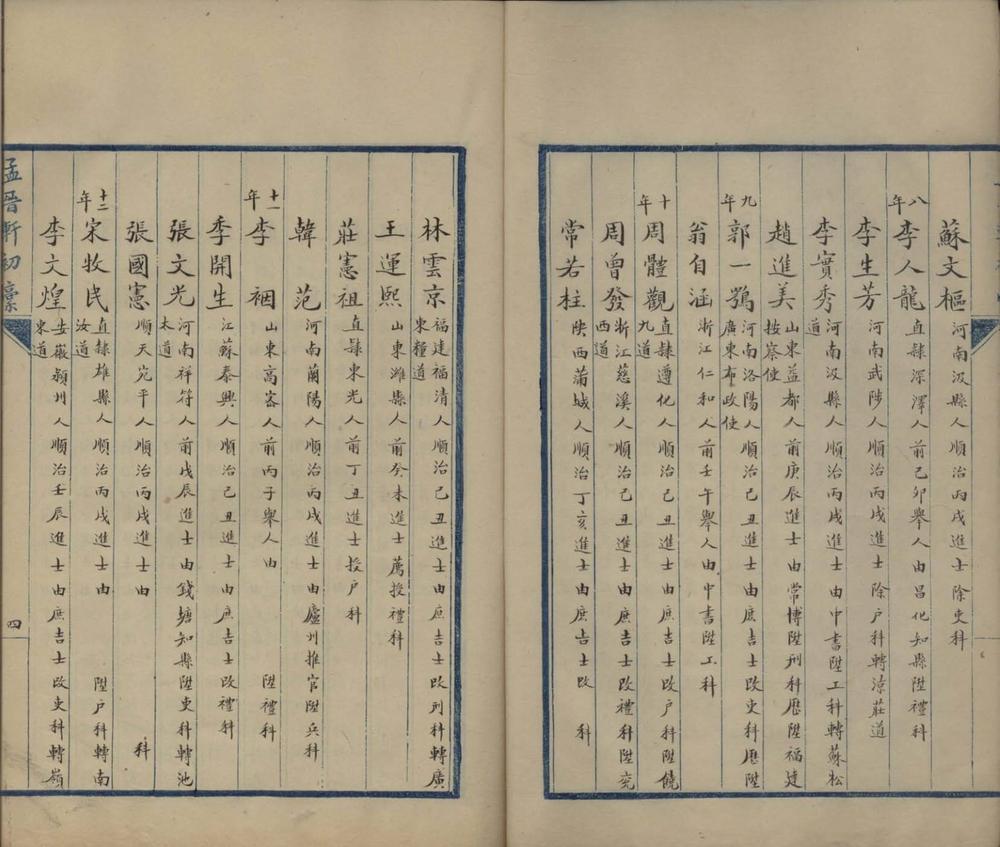 蘇文樞 河南汲縣人順治丙戌進士除吏科
八年 李人龍 直隸深澤人前己卯舉人由昌化知縣陞禮科
李生芳 河南武陟人順治丙戌進士除戶科轉涼莊道
李實秀 河南汲縣人順治丙戌進士由中書陞工科轉蘇松道
趙進美 山東益都人前庚辰進士由常博陞刑科歷陞福建按察使
九年 郭一鶚 河南洛陽人順治己丑進士由庶吉士改吏科歷陞廣東布政使
翁自涵 浙江仁和人前壬午舉人由中書陞工科
十年 周體觀 直隸遵化人順治己丑進士由庶吉士改戶科陞饒九道
周曾發 浙江慈溪人順治己丑進士由庶吉士改禮科陞兗西道
常若柱 陜西蒲城人順治丁亥進士由庶吉士改 科
林雲京 福建福清人順治己丑進士由庶吉士改刑科轉廣東糧道
王運熙 山東濰縣人前癸未進士薦授禮科
莊憲祖 直隸東光人前丁丑進士授戶科
韓范 河南蘭陽人順治丙戌進士由廬州推官陞兵科
十一年 李裀 山東高密人前丙子舉人由 陞禮科
季開生 江蘇泰興人順治己丑進士由庶吉士改禮科
張文光 河南祥符人前戊辰進士由錢塘知縣陞吏科轉池太道
張國憲 順天宛平人順治丙戌進士由 科
十二年 宋牧民 直隸雄縣人順治丙戌進士由 陞戶科轉南汝道
李文煌 安徽潁州人順治壬辰進士由庶吉士改吏科轉嶺東道
孟晉軒初稾
四